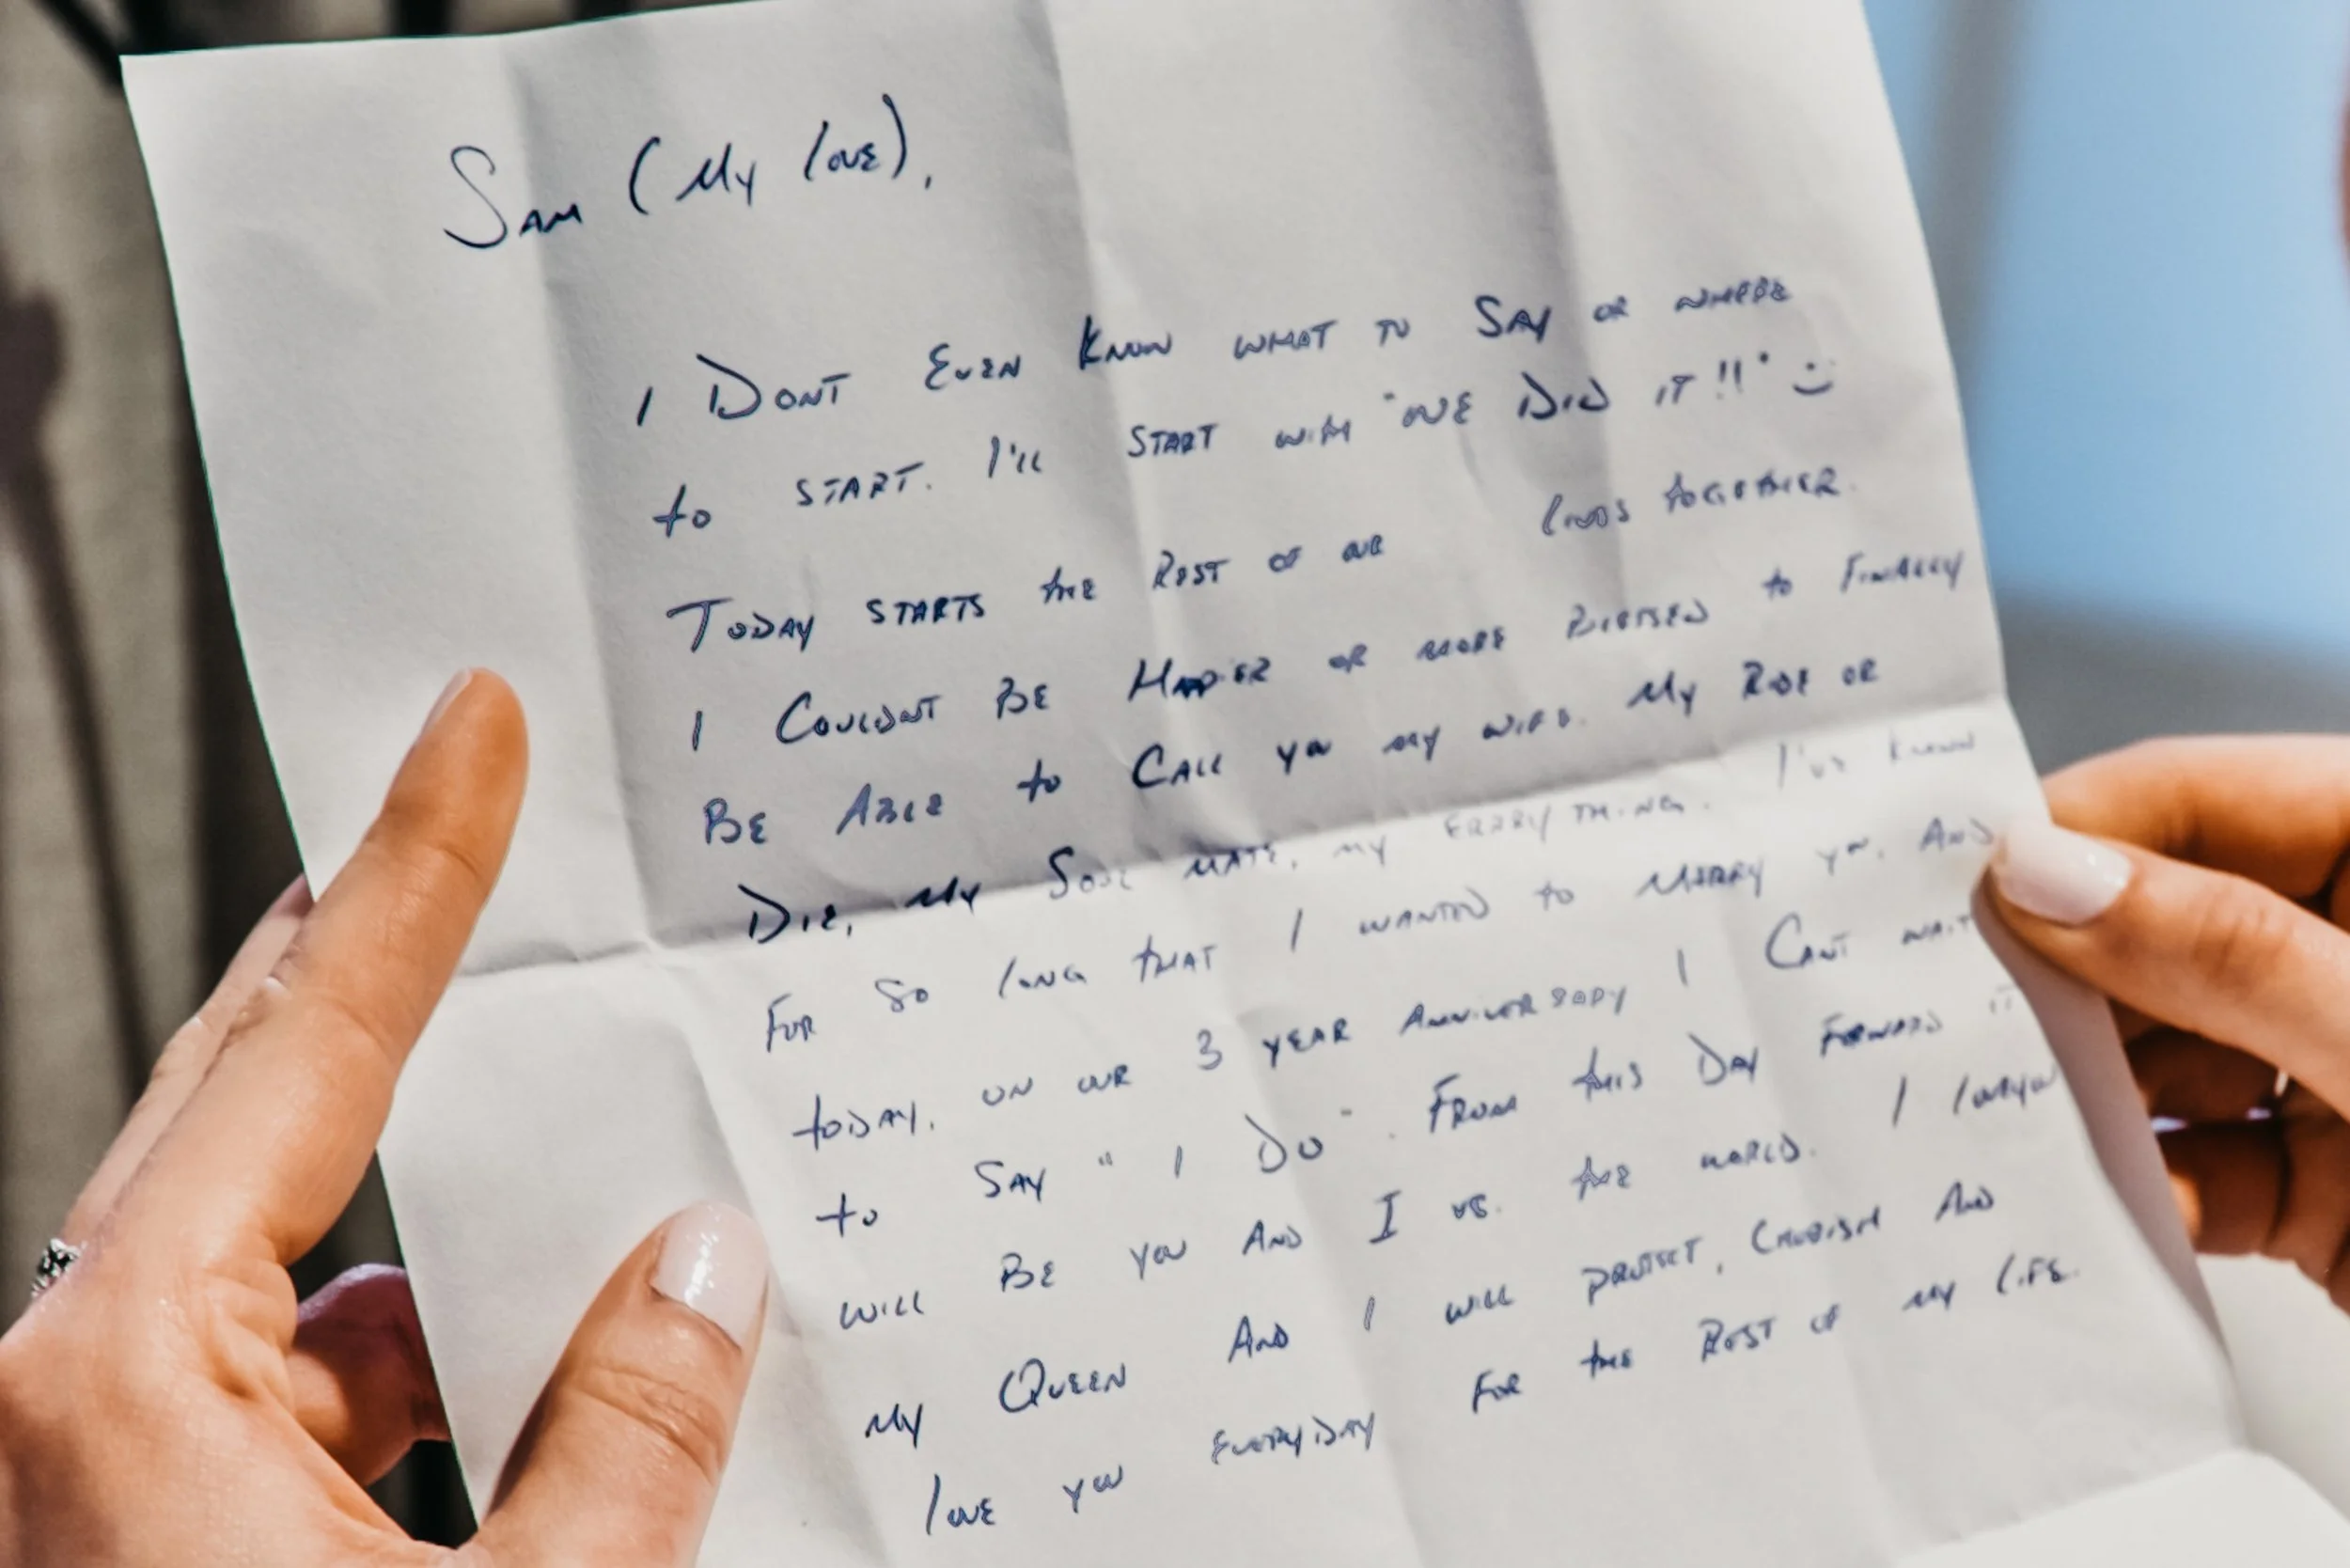 Sam (My love),
I Dont Even Know what to Say or where
to start. I'll start with "we Did it!!" :)
Today starts the Rest of our lives together.
I Couldnt Be Happier or more Blessed to Finally
Be Able to Call you my wife. My Ride or
Die, my Soul mate, my everything. I've known
For so long that I wanted to Marry you. And
today, on our 3 year Anniversary I Cant wait
to Say "I Do". From this Day Forward it
will Be you And I vs. the world. I love you
My Queen And I will protect, Cherish And
love you everyday For the Rest of my life.